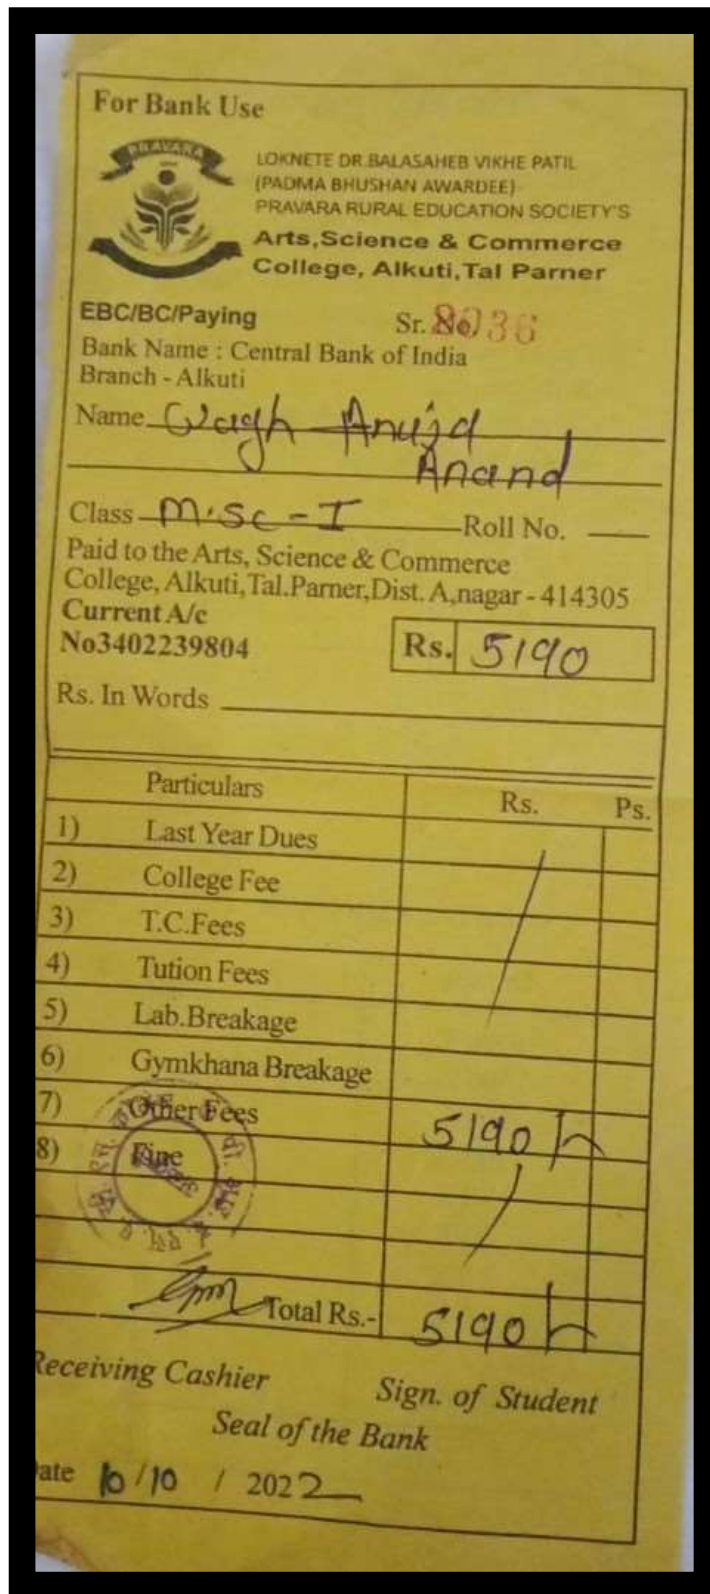 For Bank Use
PRAVARA
LOKNETE DR.BALASAHEB VIKHE PATIL
(PADMA BHUSHAN AWARDEE)
PRAVARA RURAL EDUCATION SOCIETY'S
Arts,Science & Commerce
College, Alkuti,Tal Parner
EBC/BC/Paying Sr. No.
Bank Name : Central Bank of India
Branch - Alkuti
Name Wagh Anuja
Anand
Class M.Sc-I Roll No.
Paid to the Arts, Science & Commerce
College, Alkuti,Tal.Parner,Dist. A,nagar - 414305
Current A/c
No3402239804 Rs. 5190
Rs. In Words
Particulars Rs. Ps.
1) Last Year Dues
2) College Fee
3) T.C.Fees
4) Tution Fees
5) Lab.Breakage
6) Gymkhana Breakage
7) Other Fees 5190
8) Fine
Total Rs.- 5190
Receiving Cashier Sign. of Student
Seal of the Bank
ate 10/10 / 2022